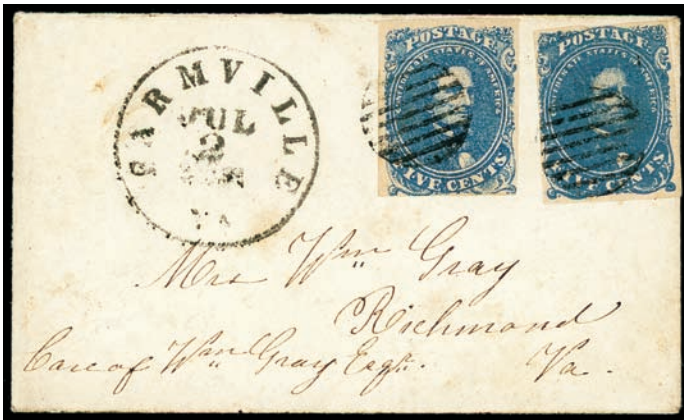 FARMVILLE
JUL
2
VA
POSTAGE
CONFEDERATE STATES OF AMERICA
FIVE CENTS
POSTAGE
CONFEDERATE STATES OF AMERICA
FIVE CENTS
Mrs Wm Gray
Richmond
Care of Wm Gray Esqr. Va.